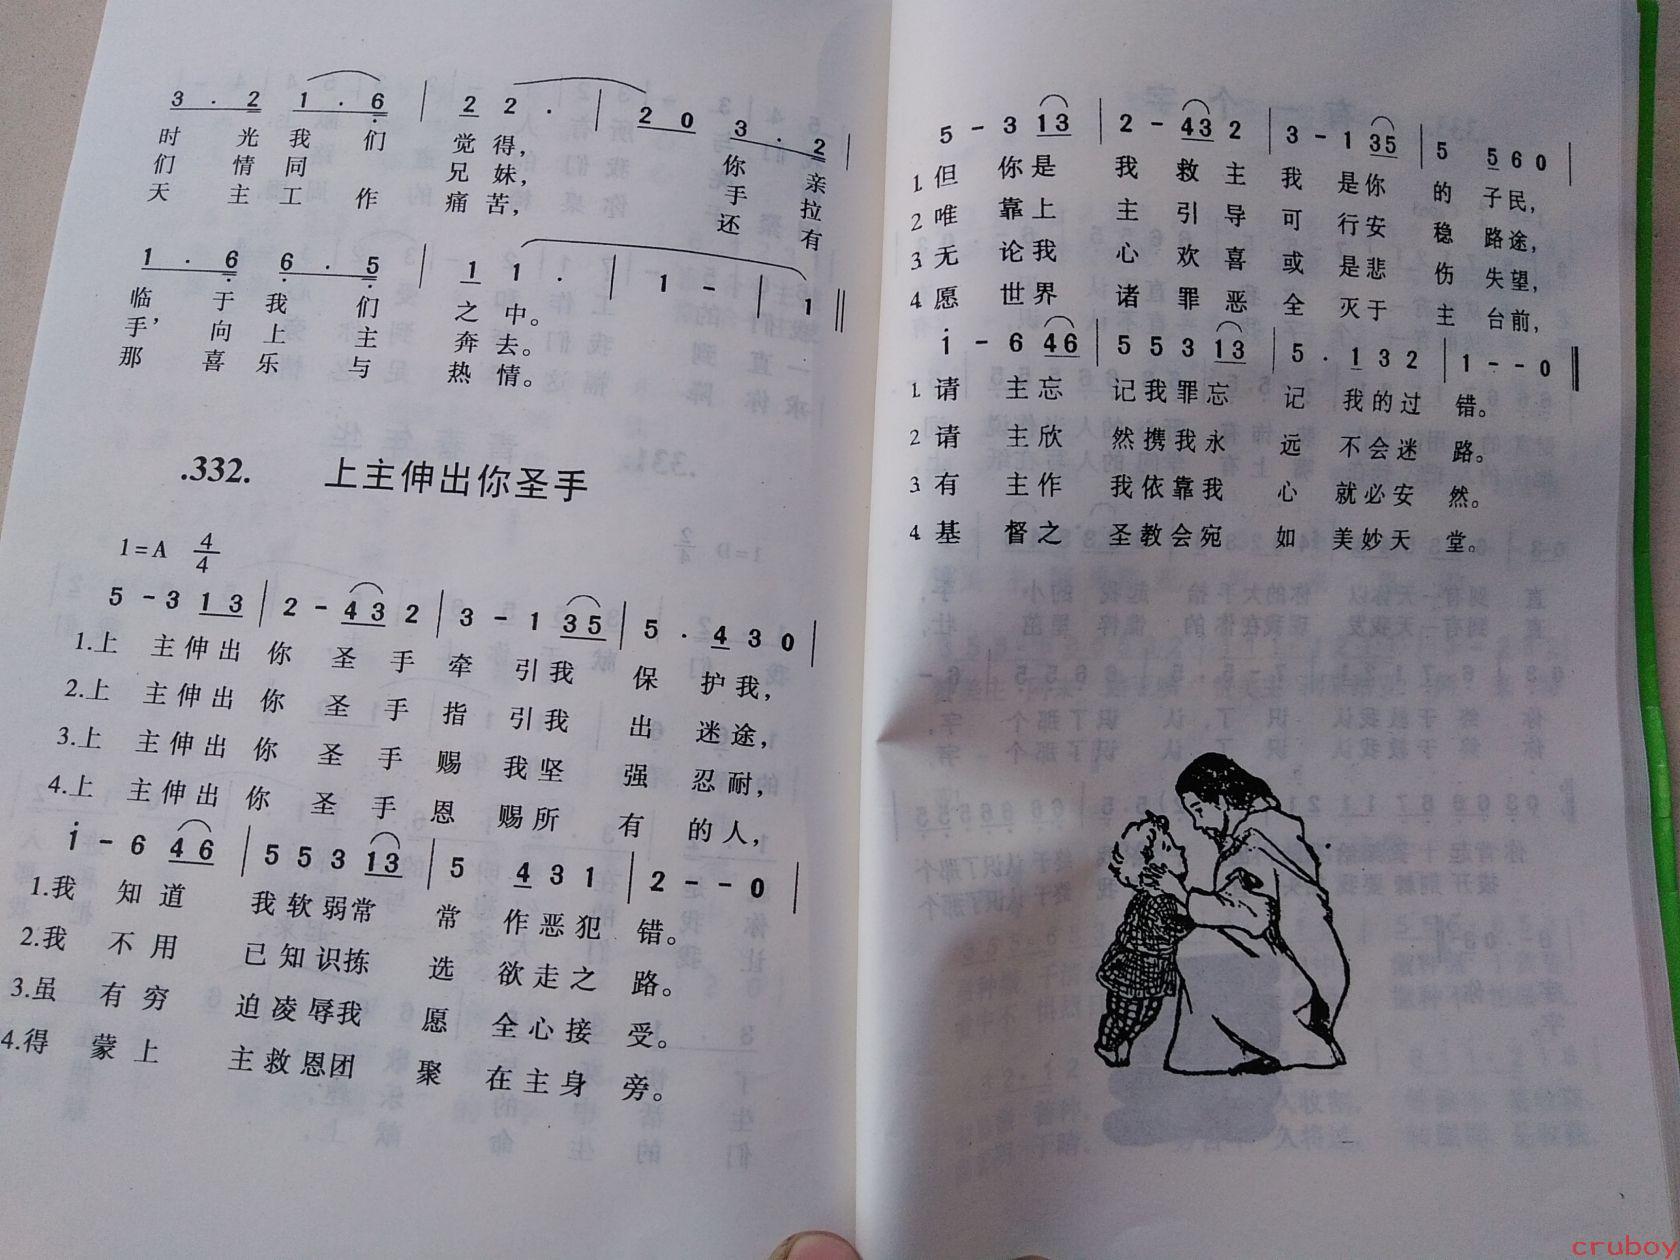 3 . 2 1 . 6 | 2 2 . | 2 0 3 . 2 |
时 光 我 们 觉 得， 你 亲
们 情 同 兄 妹， 手 拉
天 主 工 作 痛 苦， 还 有
1 . 6 6 . 5 | 1 1 . | 1 - | 1 ‖
临 于 我 们 之 中。
手， 向 上 主 奔 去。
那 喜 乐 与 热 情。
.332. 上主伸出你圣手
1=A 4/4
5 - 3 1 3 | 2 - 4 3 2 | 3 - 1 3 5 | 5 . 4 3 0 |
1.上 主 伸 出 你 圣 手 牵 引 我 保 护 我，
2.上 主 伸 出 你 圣 手 指 引 我 出 迷 途，
3.上 主 伸 出 你 圣 手 赐 我 坚 强 忍 耐，
4.上 主 伸 出 你 圣 手 恩 赐 所 有 的 人，
i - 6 4 6 | 5 5 3 1 3 | 5 4 3 1 | 2 - - 0 |
1.我 知 道 我 软 弱 常 常 作 恶 犯 错。
2.我 不 用 已 知 识 拣 选 欲 走 之 路。
3.虽 有 穷 迫 凌 辱 我 愿 全 心 接 受。
4.得 蒙 上 主 救 恩 团 聚 在 主 身 旁。
5 - 3 1 3 | 2 - 4 3 2 | 3 - 1 3 5 | 5 5 6 0 |
1.但 你 是 我 救 主 我 是 你 的 子 民，
2 唯 靠 上 主 引 导 可 行 安 稳 路 途，
3.无 论 我 心 欢 喜 或 是 悲 伤 失 望，
4.愿 世 界 诸 罪 恶 全 灭 于 主 台 前，
i - 6 4 6 | 5 5 3 1 3 | 5 . 1 3 2 | 1 - - 0 ‖
1.请 主 忘 记 我 罪 忘 记 我 的 过 错。
2 请 主 欣 然 携 我 永 远 不 会 迷 路。
3.有 主 作 我 依 靠 我 心 就 必 安 然。
4.基 督 之 圣 教 会 宛 如 美 妙 天 堂。
cruboy